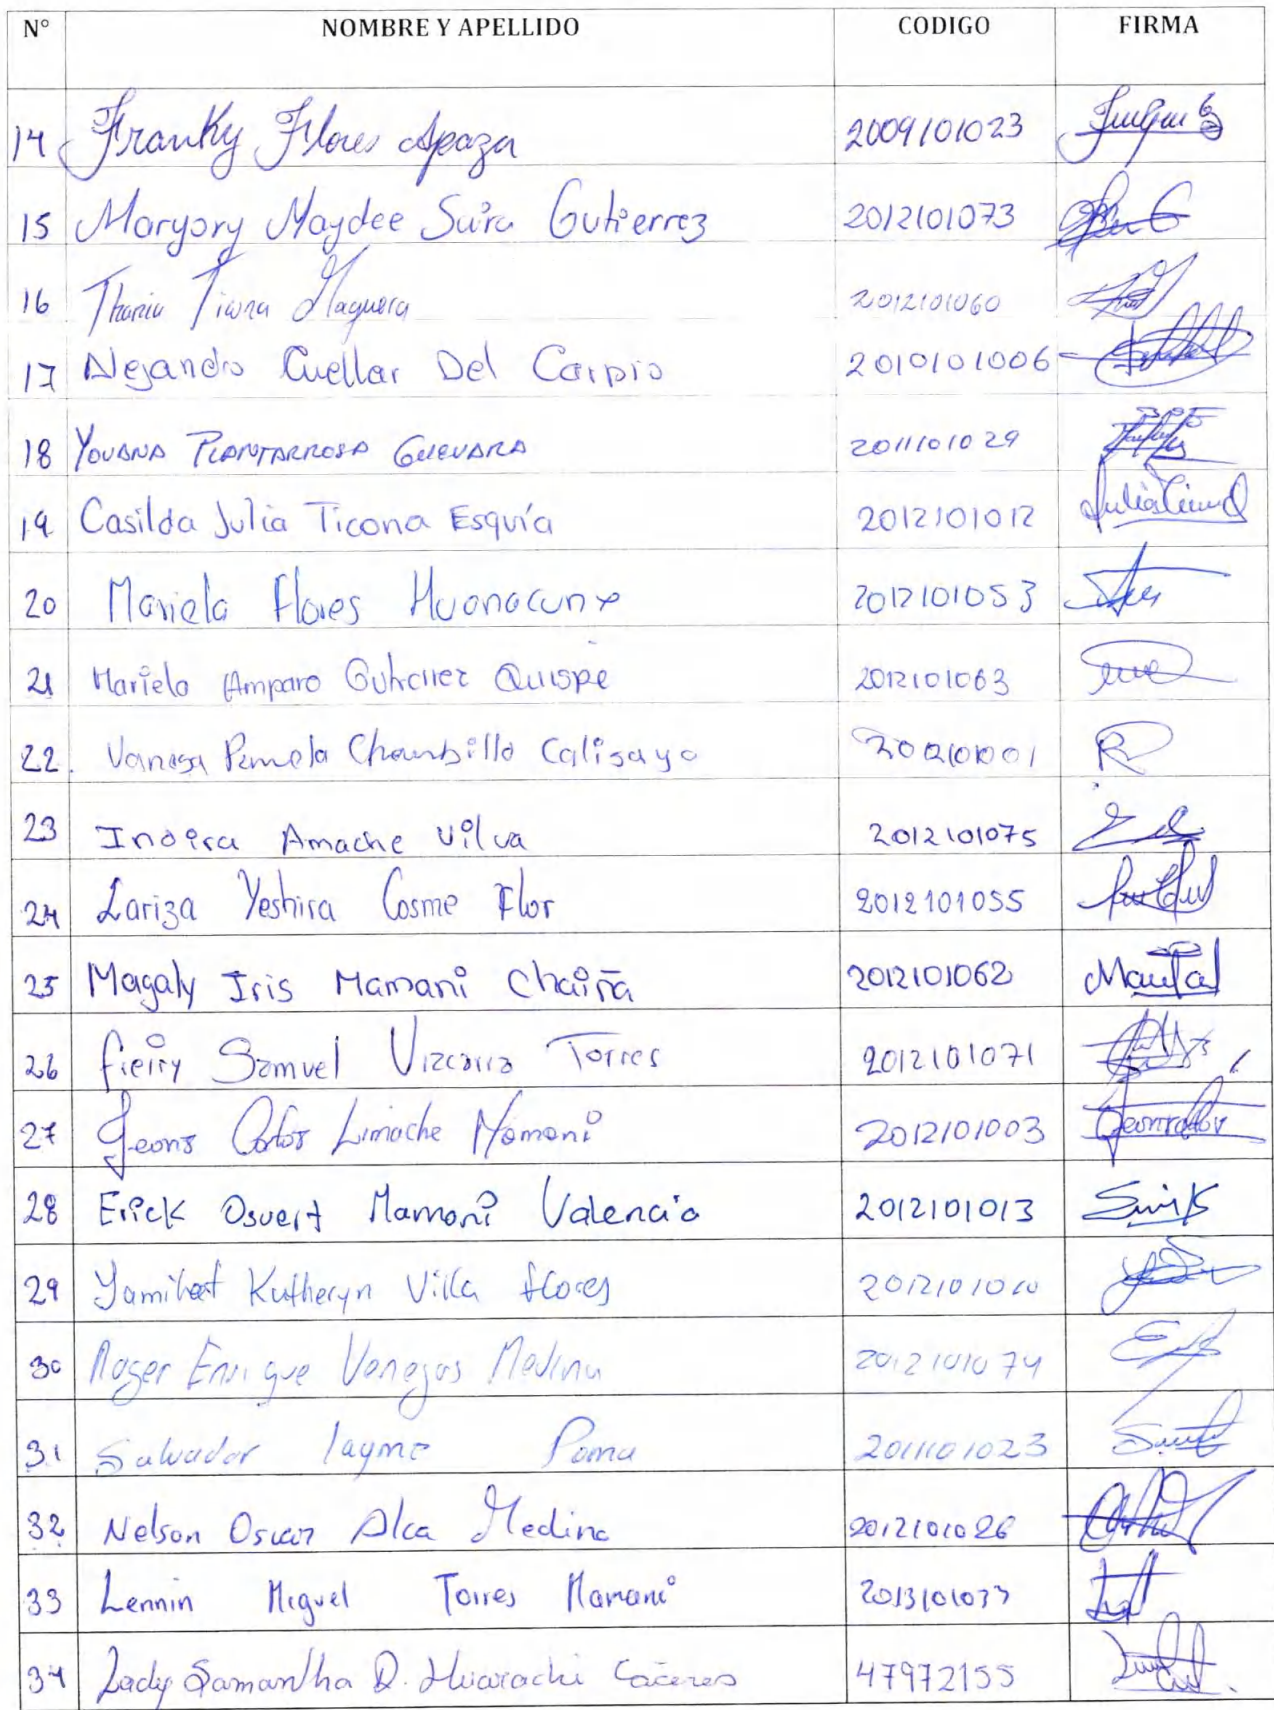 N° NOMBRE Y APELLIDO CODIGO FIRMA
14 Franky Flores Apaza 2009101023
15 Maryory Maydee Suira Gutierrez 2012101073
16 Thania Ticona Maquera 2012101060
17 Alejandro Cuellar Del Carpio 2010101006
18 YOVANA PLANTARROSA GUEVARA 2011101029
19 Casilda Julia Ticona Esquía 2012101012
20 Mariela Flores 2012101053
21 Mariela Amparo Quispe 2012101063
22. Vanesa Pamela Chambilla Calisaya
23 Indira Amache Vilva 2012101075
24 Lariza Yeshira Cosme Flor 2012101055
25 Magaly Iris Mamani Chaiña 2012101062
26 Samuel Vizcarra Torres 2012101071
27 Jeans Carlos Limache Mamani 2012101003
28 Erick Osvert Mamani Valencia 2012101013
29 Kutheryn Villa flores 2012101010
30 Roger Enrique Venegas Medina 2012101074
31 Salvador Layme Poma 2011101023
32 Nelson Oscar Alca Medina 2012101026
33 Lennin Miguel Torres Mamani
34 Lady Samantha D. Huarachi Cáceres 47972155